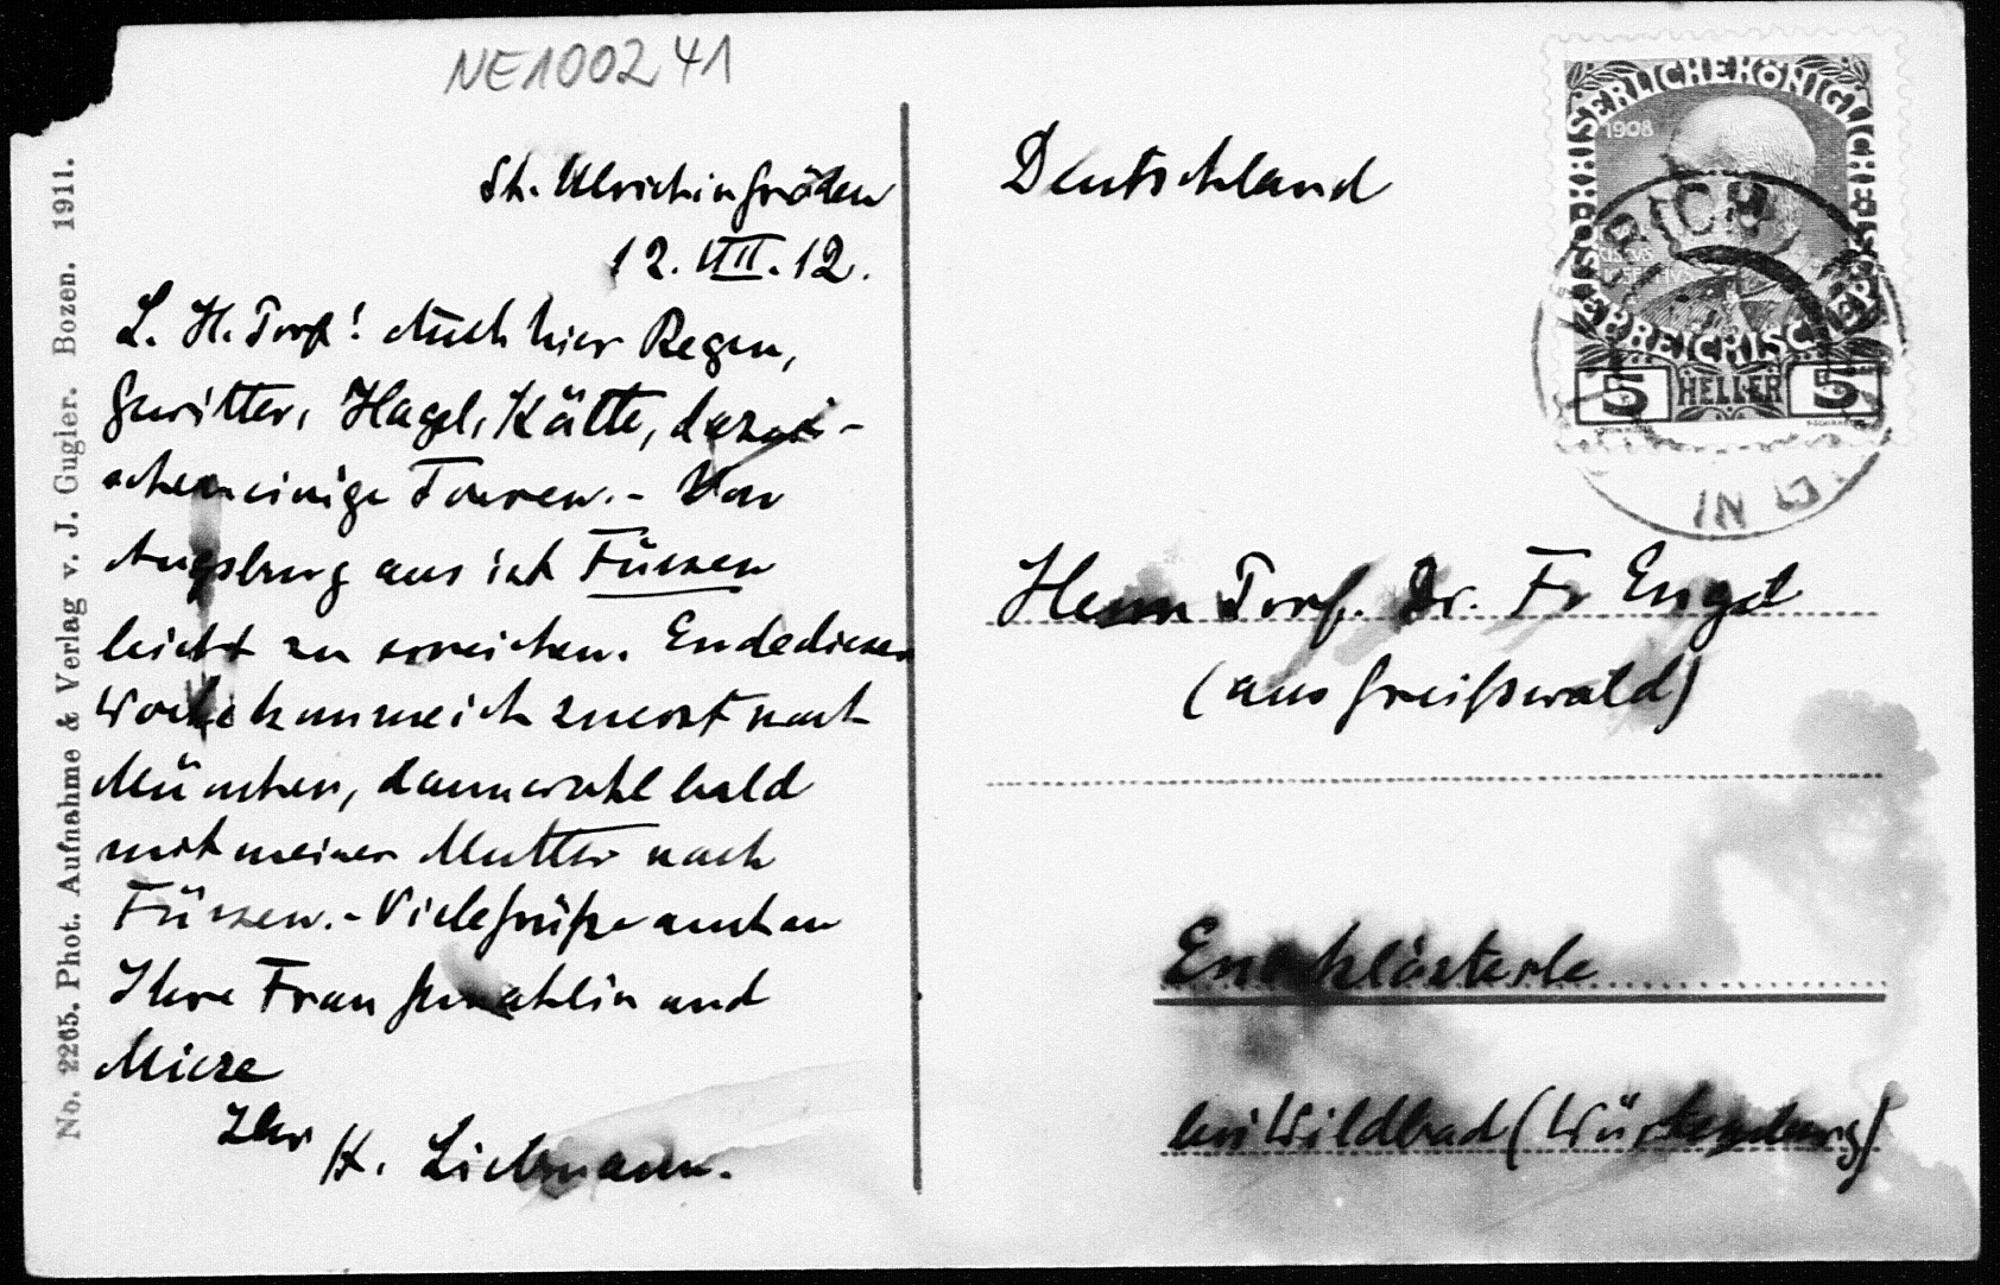 NE100241
St. Ulrich in Gröden
12. VIII. 12.
L. H. Prof! Auch hier Regen,
Gewitter, Hagel, Kälte, dazwi-
schen einige Touren. - Von
Augsburg aus ist Füssen
leicht zu erreichen. Ende dieser
Woche komme ich zuerst nach
München, dann wohl bald
mit meiner Mutter nach
Füssen. - Viele Grüße auch an
Ihre Frau Gemahlin und
Mieze
Ihr H. Liebmann.
No. 2265. Phot. Aufnahme & Verlag v. J. Gugler. Bozen. 1911.
Deutschland
Herrn Prof. Dr. Fr Engel
(aus Greifswald)
Enzklösterle
bei Wildbad (Württemberg)
KAISERLICHE KÖNIGLICHE ÖSTERREICHISCHE POST
1908
5 HELLER 5